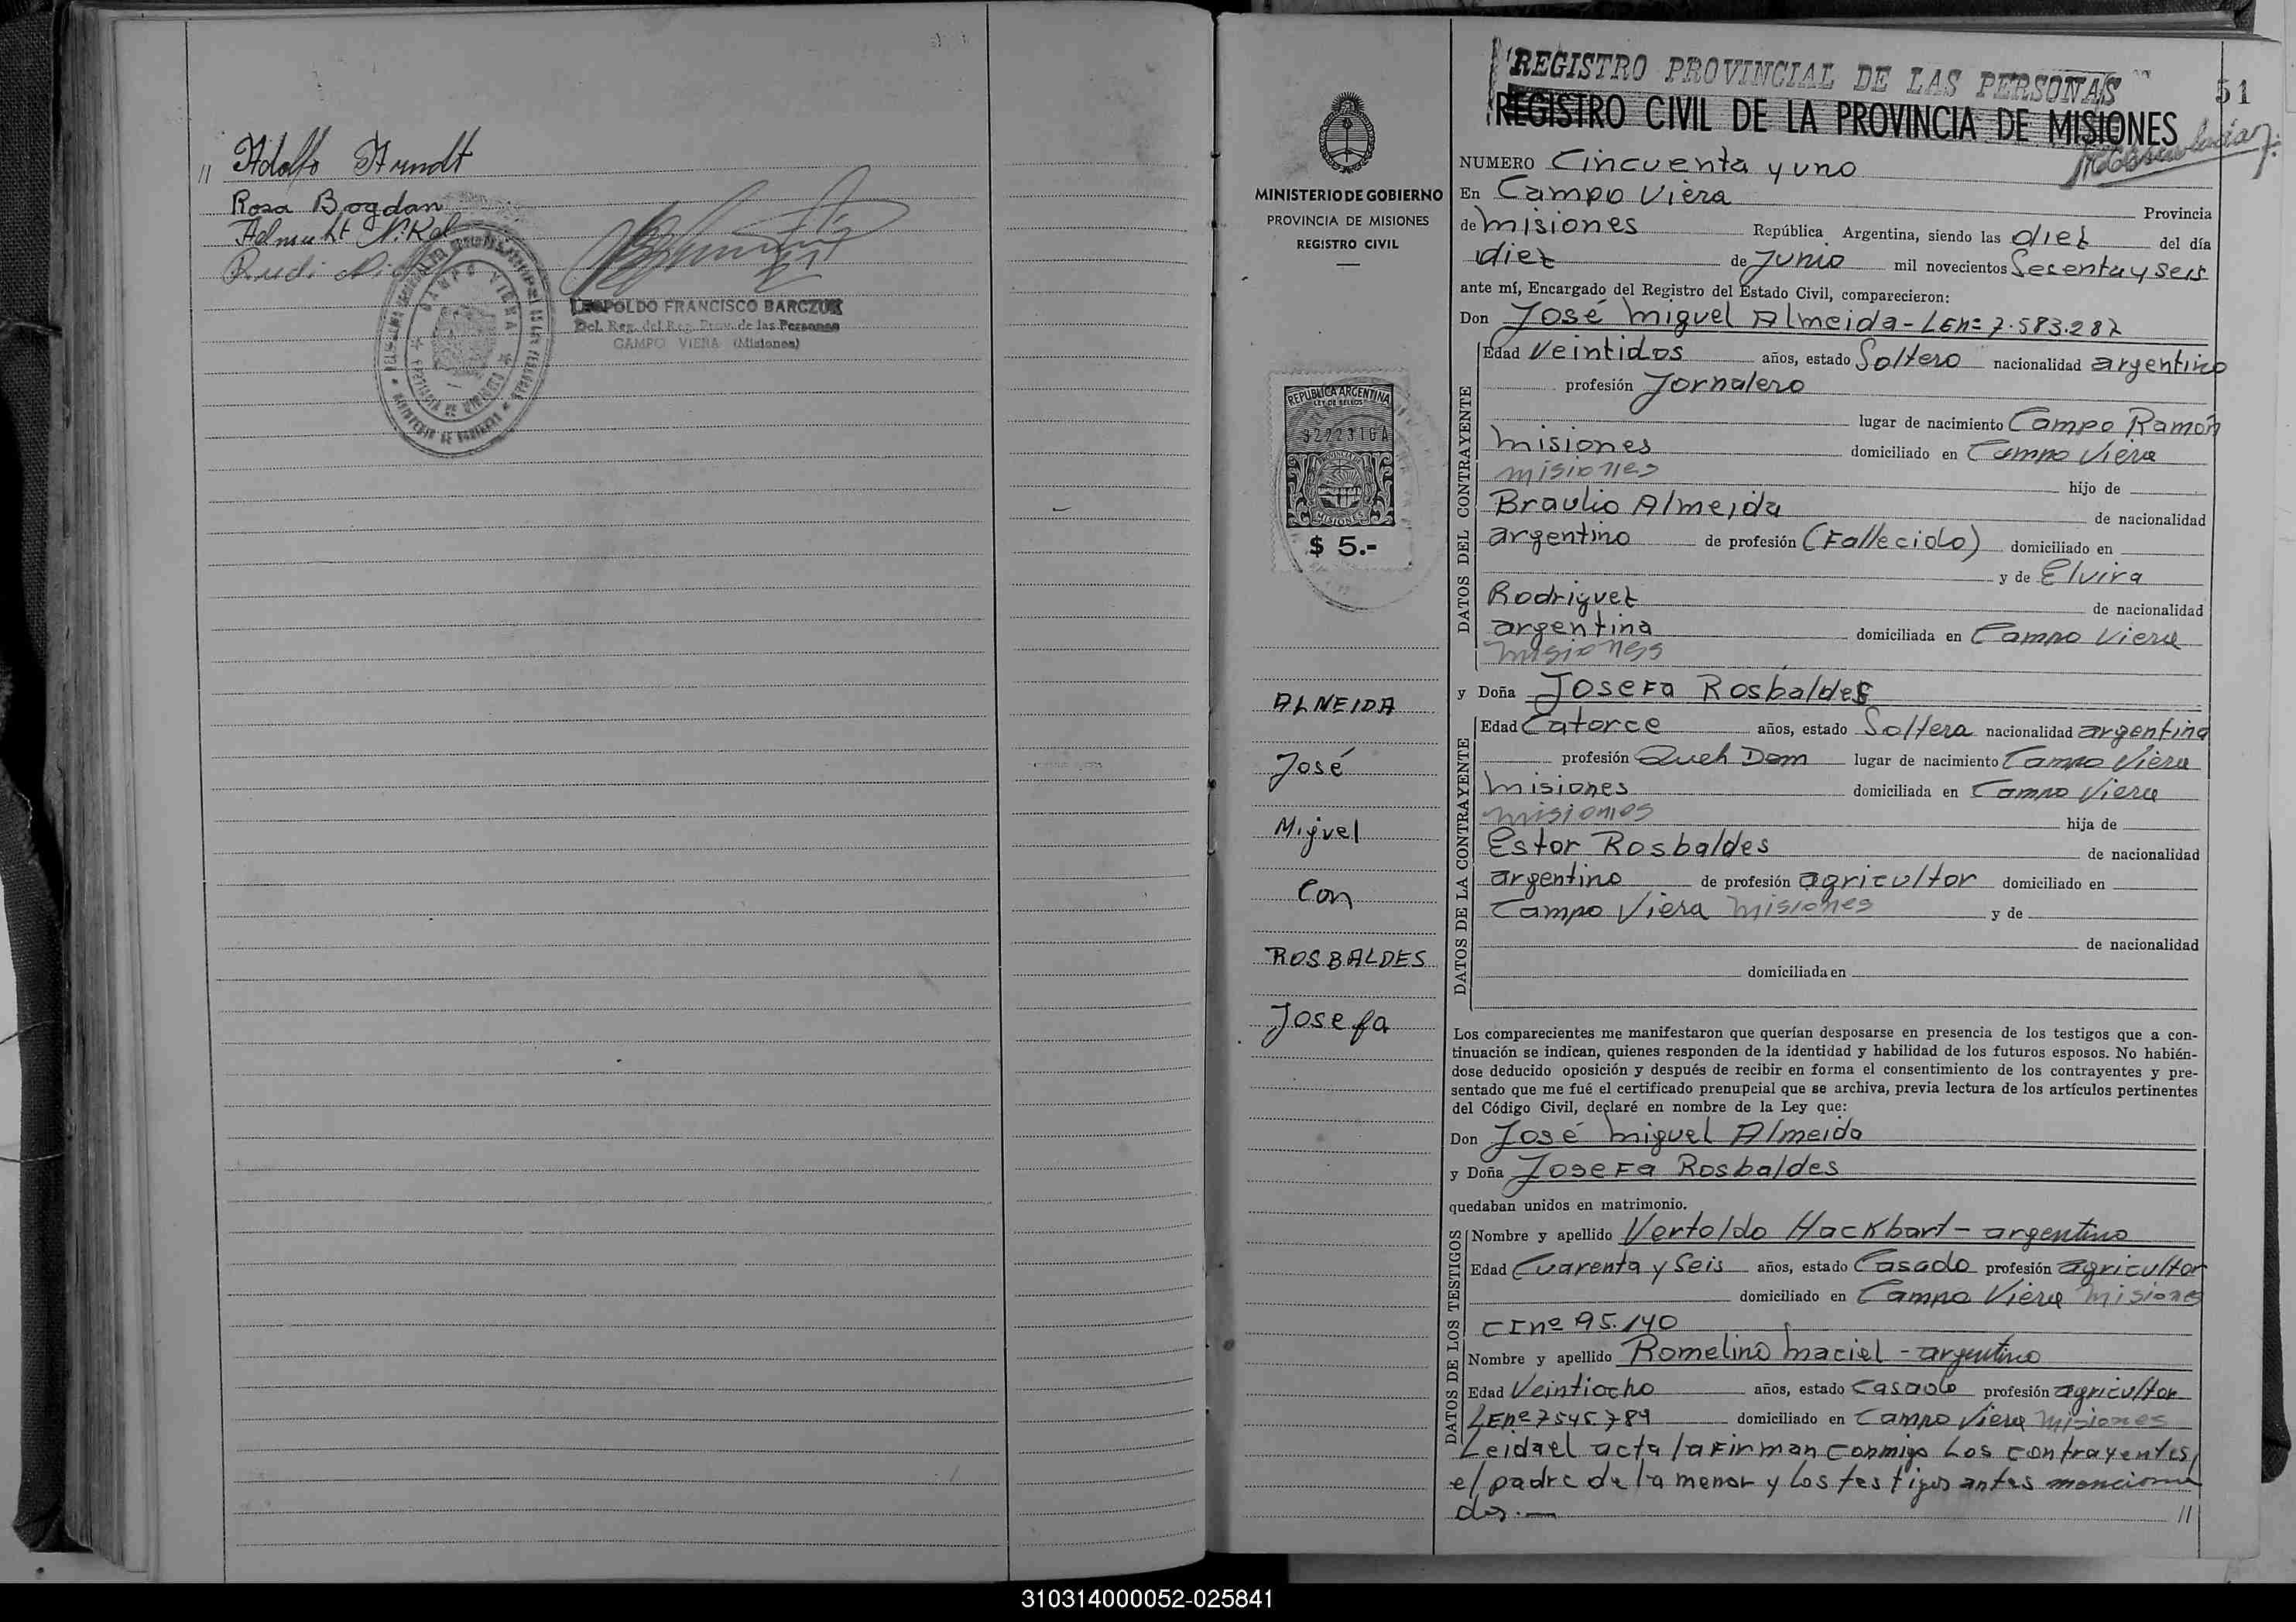 " Adolfo Arndt
Rosa Bogdan
Helmuht Nikel
Rudi
CAMPO VIERA
LEOPOLDO FRANCISCO BARCZUK
Del. Reg. del Reg. Prov. de las Personas
CAMPO VIERA (Misiones)
MINISTERIO DE GOBIERNO
PROVINCIA DE MISIONES
REGISTRO CIVIL
REPUBLICA ARGENTINA
LEY DE SELLOS
MISIONES
$ 5.-
ALNEIDA
José
Miguel
Con
ROSBALDES
Josefa
"REGISTRO PROVINCIAL DE LAS PERSONAS"
51
REGISTRO CIVIL DE LA PROVINCIA DE MISIONES
NUMERO Cincuenta y uno
En Campo Viera Provincia
de Misiones República Argentina, siendo las diez del día
diez de Junio mil novecientos Sesenta y seis
ante mí, Encargado del Registro del Estado Civil, comparecieron:
Don José Miguel Almeida - LEnº 7.583.287
DATOS DEL CONTRAYENTE
Edad Veintidos años, estado Soltero nacionalidad argentino
profesión Jornalero
lugar de nacimiento Campo Ramón
Misiones domiciliado en Campo Viera
Misiones hijo de
Braulio Almeida de nacionalidad
argentino de profesión (Fallecido) domiciliado en
y de Elvira
Rodriguez de nacionalidad
argentina domiciliada en Campo Viera
Misiones
y Doña Josefa Rosbaldes
DATOS DE LA CONTRAYENTE
Edad Catorce años, estado Soltera nacionalidad argentina
profesión Queh Dom lugar de nacimiento Campo Viera
Misiones domiciliada en Campo Viera
Misiones hija de
Estor Rosbaldes de nacionalidad
argentino de profesión agricultor domiciliado en
Campo Viera Misiones y de
de nacionalidad
domiciliada en
Los comparecientes me manifestaron que querían desposarse en presencia de los testigos que a con-
tinuación se indican, quienes responden de la identidad y habilidad de los futuros esposos. No habién-
dose deducido oposición y después de recibir en forma el consentimiento de los contrayentes y pre-
sentado que me fué el certificado prenupcial que se archiva, previa lectura de los artículos pertinentes
del Código Civil, declaré en nombre de la Ley que:
Don José Miguel Almeida
y Doña Josefa Rosbaldes
quedaban unidos en matrimonio.
DATOS DE LOS TESTIGOS
Nombre y apellido Vertoldo Hackbart - argentino
Edad Cuarenta y Seis años, estado Casado profesión agricultor
domiciliado en Campo Viera Misiones
CInº 95.140
Nombre y apellido Romelino Maciel - argentino
Edad Veintiocho años, estado Casado profesión agricultor
LEnº 7545.789 domiciliado en Campo Viera Misiones
Leida el acta la firman conmigo los contrayentes,
el padre de la menor y los testigos antes menciona
dos.— //
310314000052-025841